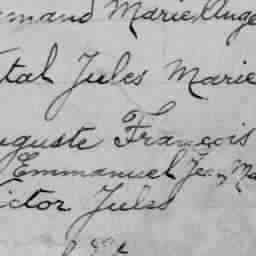 ernand Marie Ange
tal Jules Marie
uguste François
Emmanuel Jean Ma
ictor Jules